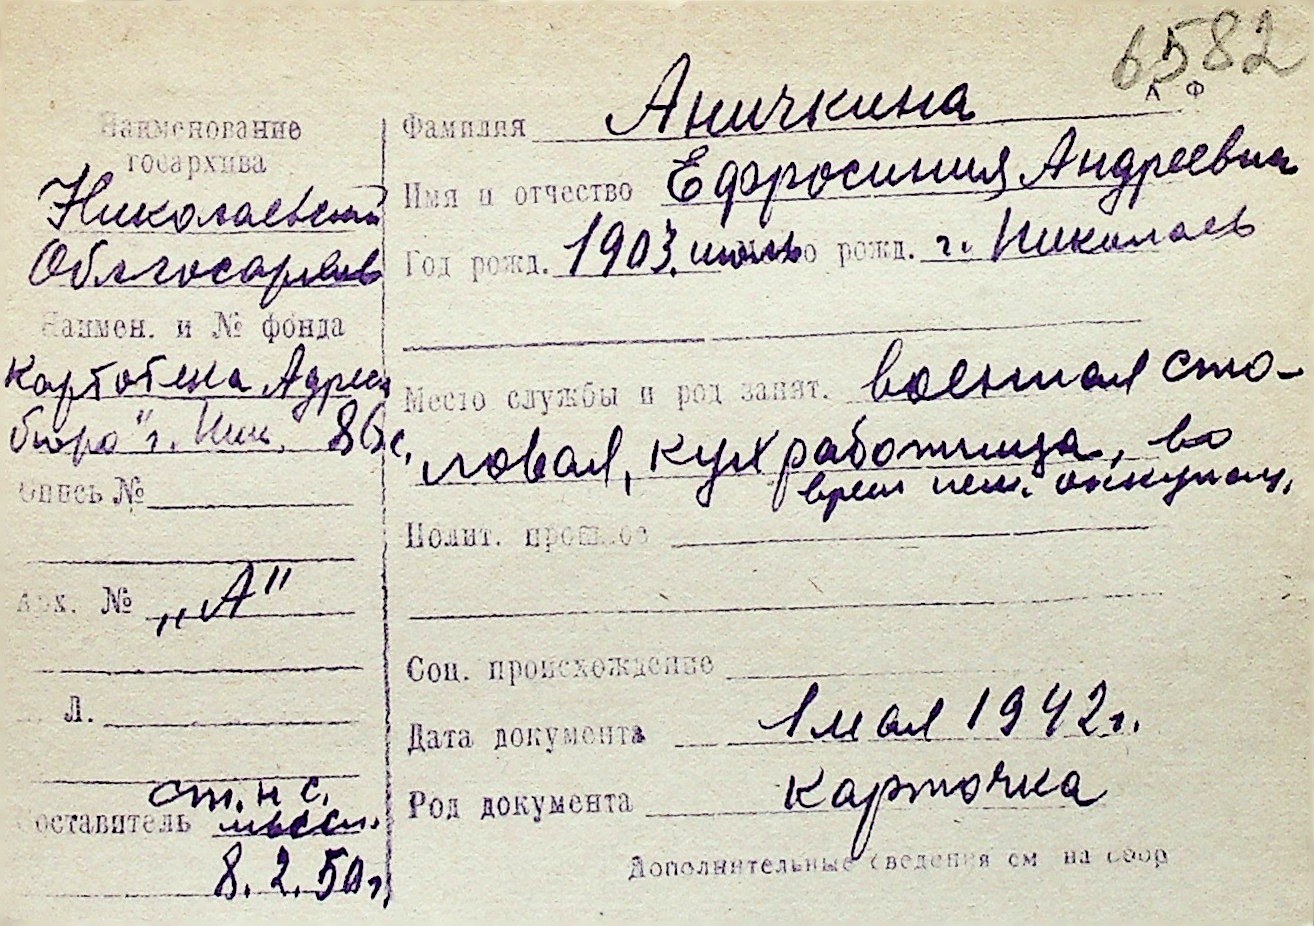 6582
А Ф
Наименование
госархива
Николаевский
Облгосархив
Наимен. и № фонда
Картотека Адресн
бюро" г. Ник.
Опись №
Арх. № „А"
Л.
ст. н с.
Составитель
8. 2. 50 г.
Фамилия Аничкина
Имя и отчество Ефросиния Андреевна
Год рожд. 1903. июль о рожд. г. Николаев
Место службы и род занят. военная сто-
ловая, кухработница, во
врем нем. оккупац.
Полит. прошлое
Соц. происхождение
Дата документа 1 мая 1942 г.
Род документа карточка
Дополнительные сведения см на обор